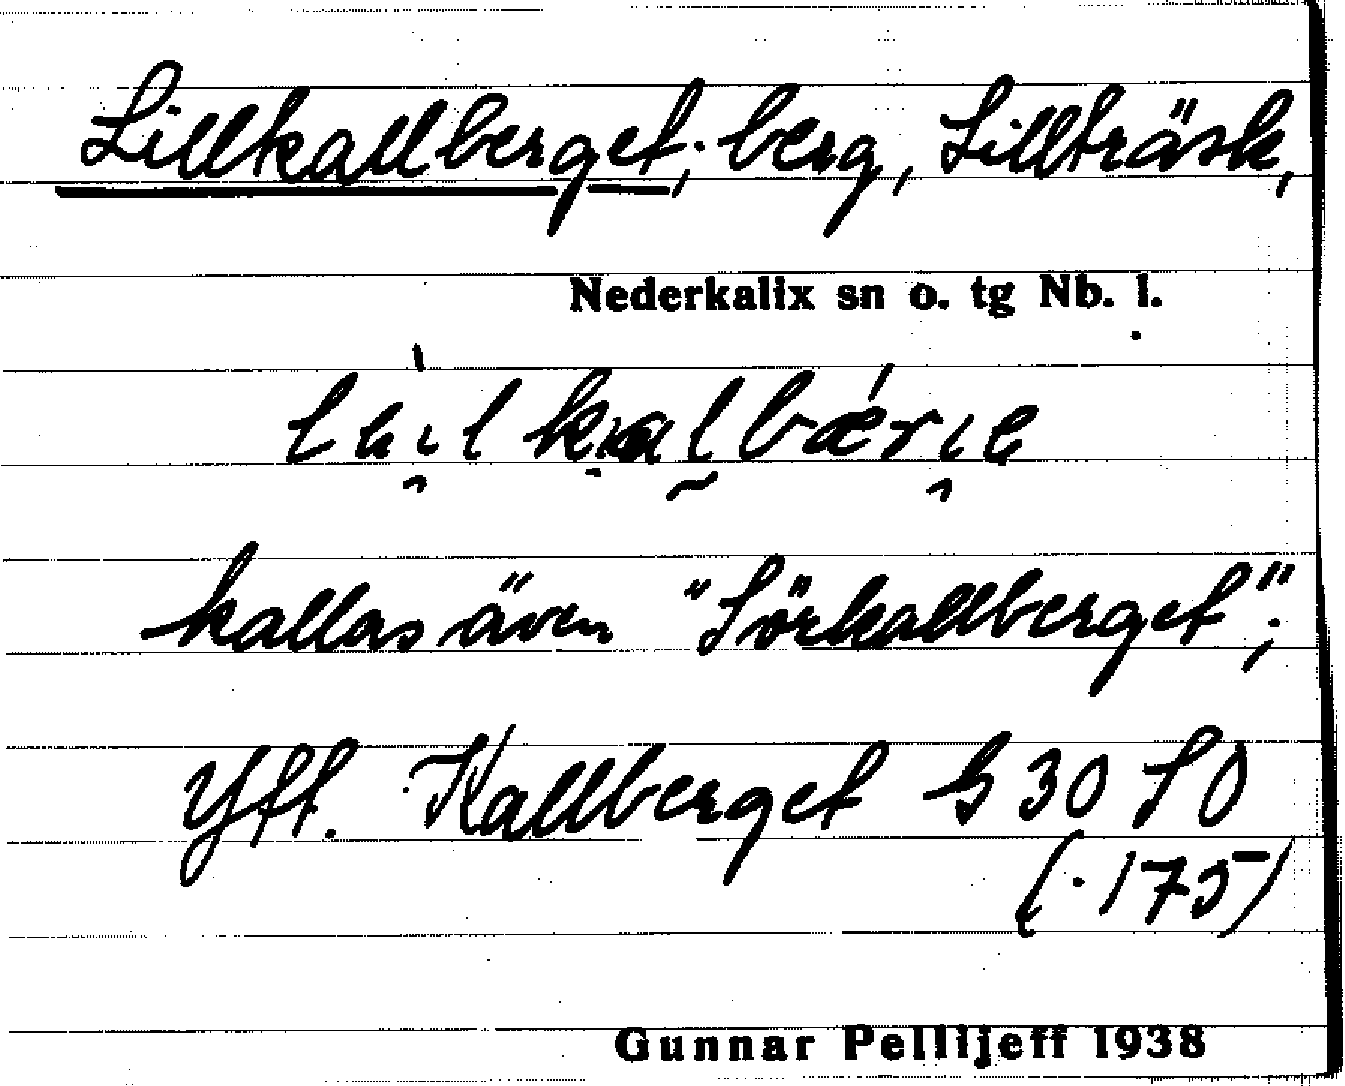 Lillkallberget; berg, Lillträsk,
Nederkalix sn o. tg Nb. l.
kallas även "Sörkallberget";
Yft. Kallberget G 30 SO
(·175)
Gunnar Pellijeff 1938